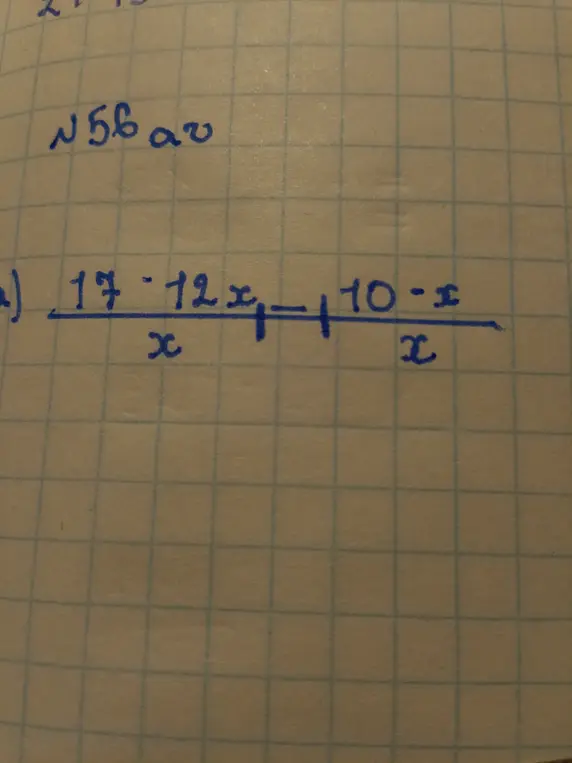 №56 аг
а) 17 - 12x / x - 10 - x / x